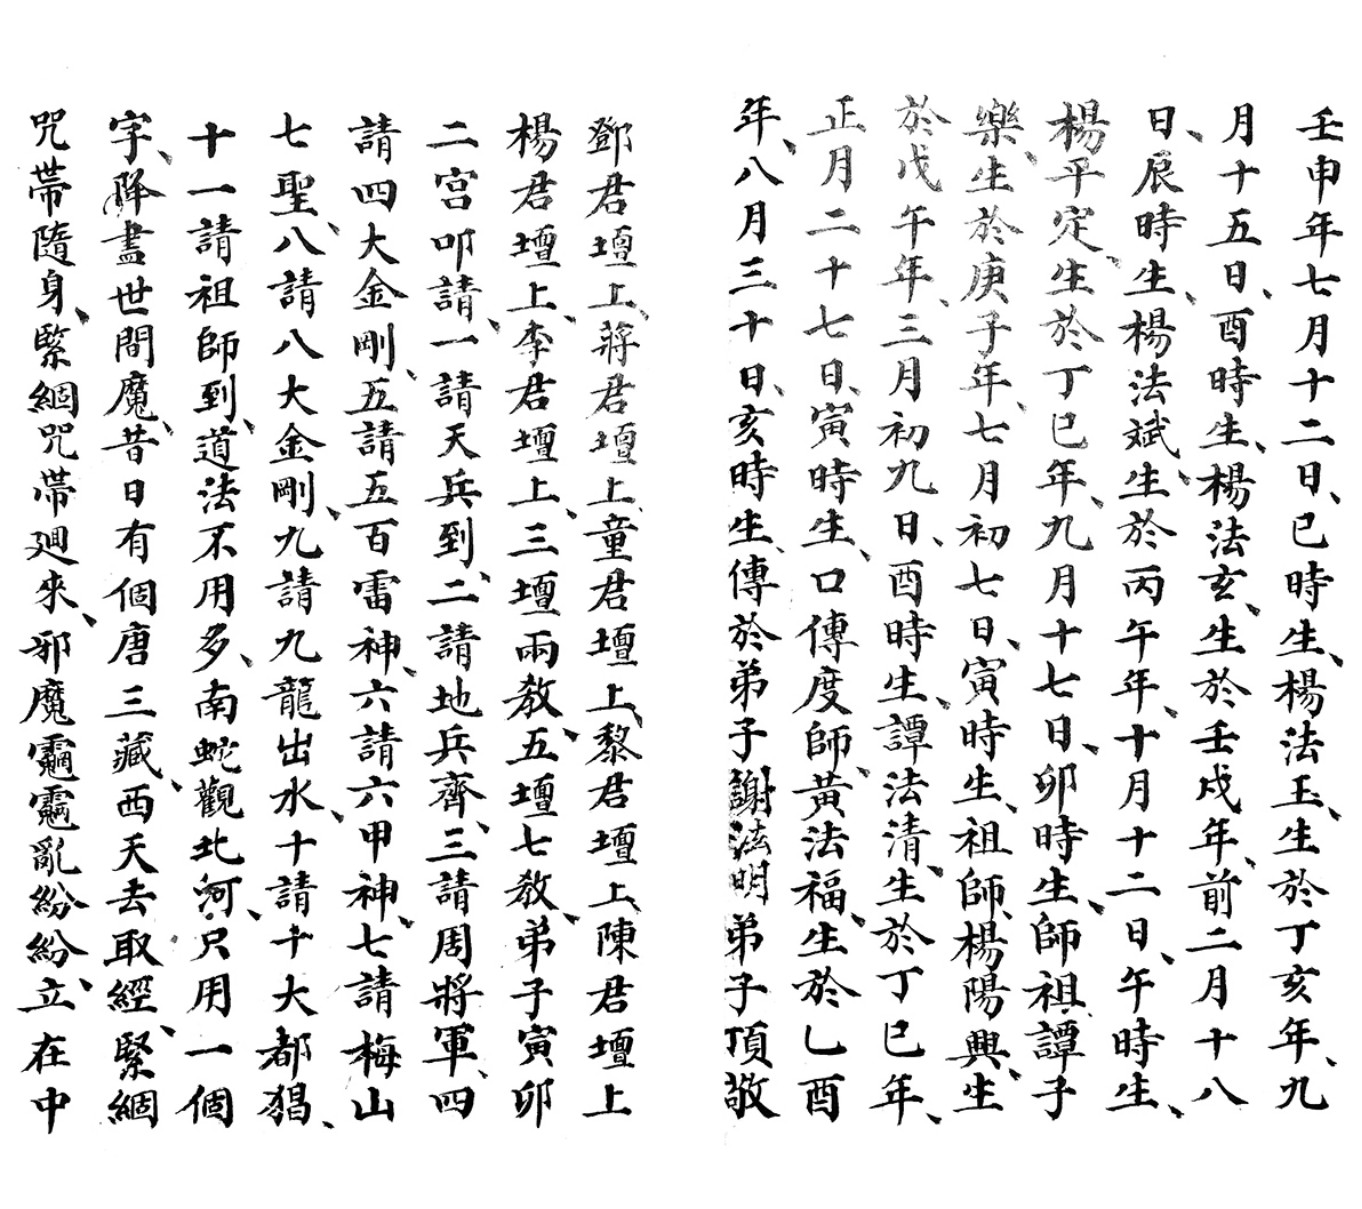 壬申年七月十二日、巳時生、楊法玉、生於丁亥年、九
月十五日、酉時生、楊法玄、生於壬戌年、前二月十八
日、辰時生、楊法斌、生於丙午年、十月十二日、午時生、
楊平定、生於丁巳年、九月十七日、卯時生、師祖譚子
樂、生於庚子年、七月初七日、寅時生、祖師楊陽興、生
於戊午年、三月初九日、酉時生、譚法清、生於丁巳年、
正月二十七日、寅時生、口傳度師、黃法福、生於乙酉
年、八月三十日、亥時生、傳於弟子謝法明弟子頂敬
鄧君壇上、蔣君壇上、童君壇上、黎君壇上、陳君壇上
楊君壇上、李君壇上、三壇兩教、五壇七教、弟子寅卯
二宮叩請、一請天兵到、二請地兵齊、三請周將軍、四
請四大金剛、五請五百雷神、六請六甲神、七請梅山
七聖、八請八大金剛、九請九龍出水、十請十大都猖、
十一請祖師到、道法不用多、南蛇觀北河、只用一個
字、降盡世間魔、昔日有個唐三藏、西天去取經、緊綑
咒帶隨身、緊綑咒帶廻來、邪魔亂紛紛、立在中